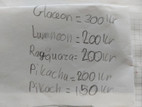 Glaceon = 300 kr
Lumineon = 200 kr
Rayquaza = 200 kr
Pikachu = 200 kr
Pikachu = 150 kr